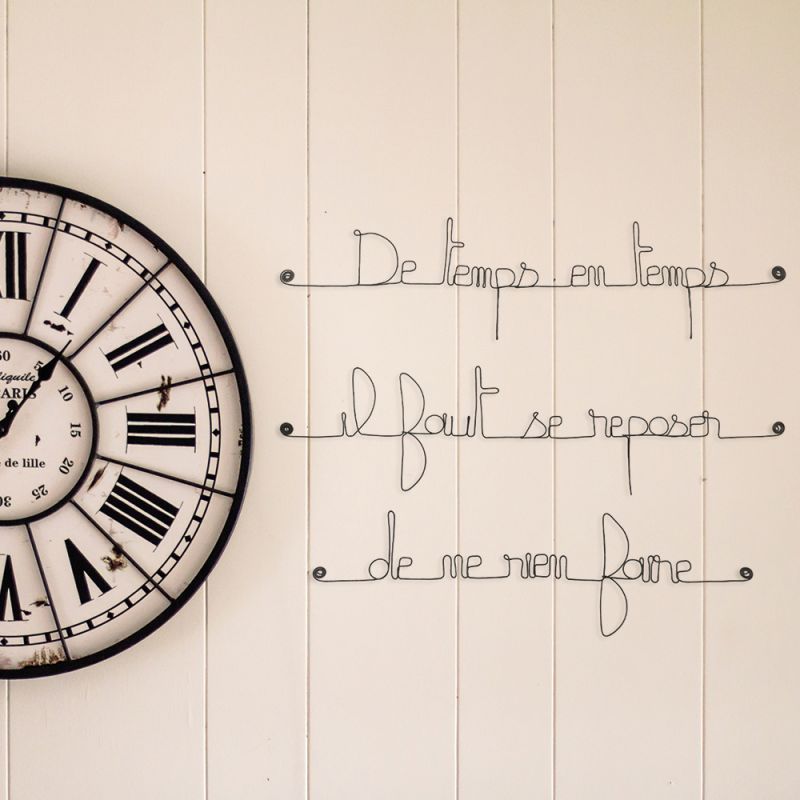 De temps en temps
il faut se reposer
de ne rien faire
XII
I
II
III
IIII
V
60
5
10
15
20
25
30
PARIS
de lille